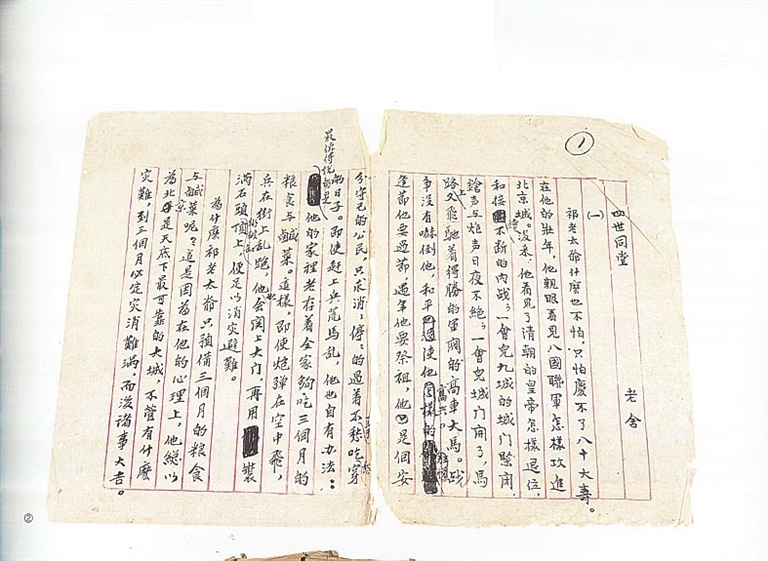 ①
四世同堂
老舍
(一)
祁老太爺什麼也不怕，只怕慶不了八十大壽。
在他的壯年，他親眼看見八國聯軍怎樣攻進
北京城。後來，他看見了清朝的皇帝怎樣退位，
和接 不斷的內戰；一會兒九城的城門緊閉，
鎗聲与炮聲日夜不絕；一會兒城門開了，馬
路上又飛馳着得勝的軍閥的高車大馬。战
爭沒有嚇倒他，和平 使他高興。
逢節他要過節，過年他要祭祖，他 是個安
分守己的公民，只求消消停停的過着不愁吃穿
的日子。即使赶上兵荒馬乱，他也自有办法：
最值得說的是
他的家裡老存着全家夠吃三個月的
粮食与鹹菜。這樣，即使炮弹在空中飛，
兵在街上乱跑，他也會関上大门，再用 裝
滿石頭的破缸頂上，便足以消灾避難。
為什麼祁老太爺只預備三個月的粮食
与鹹菜呢？這是因為在他的心理上，他総以
為北京是天底下最可靠的大城，不管有什麼
灾難，到三個月必定灾消難滿，而後諸事大吉。
②